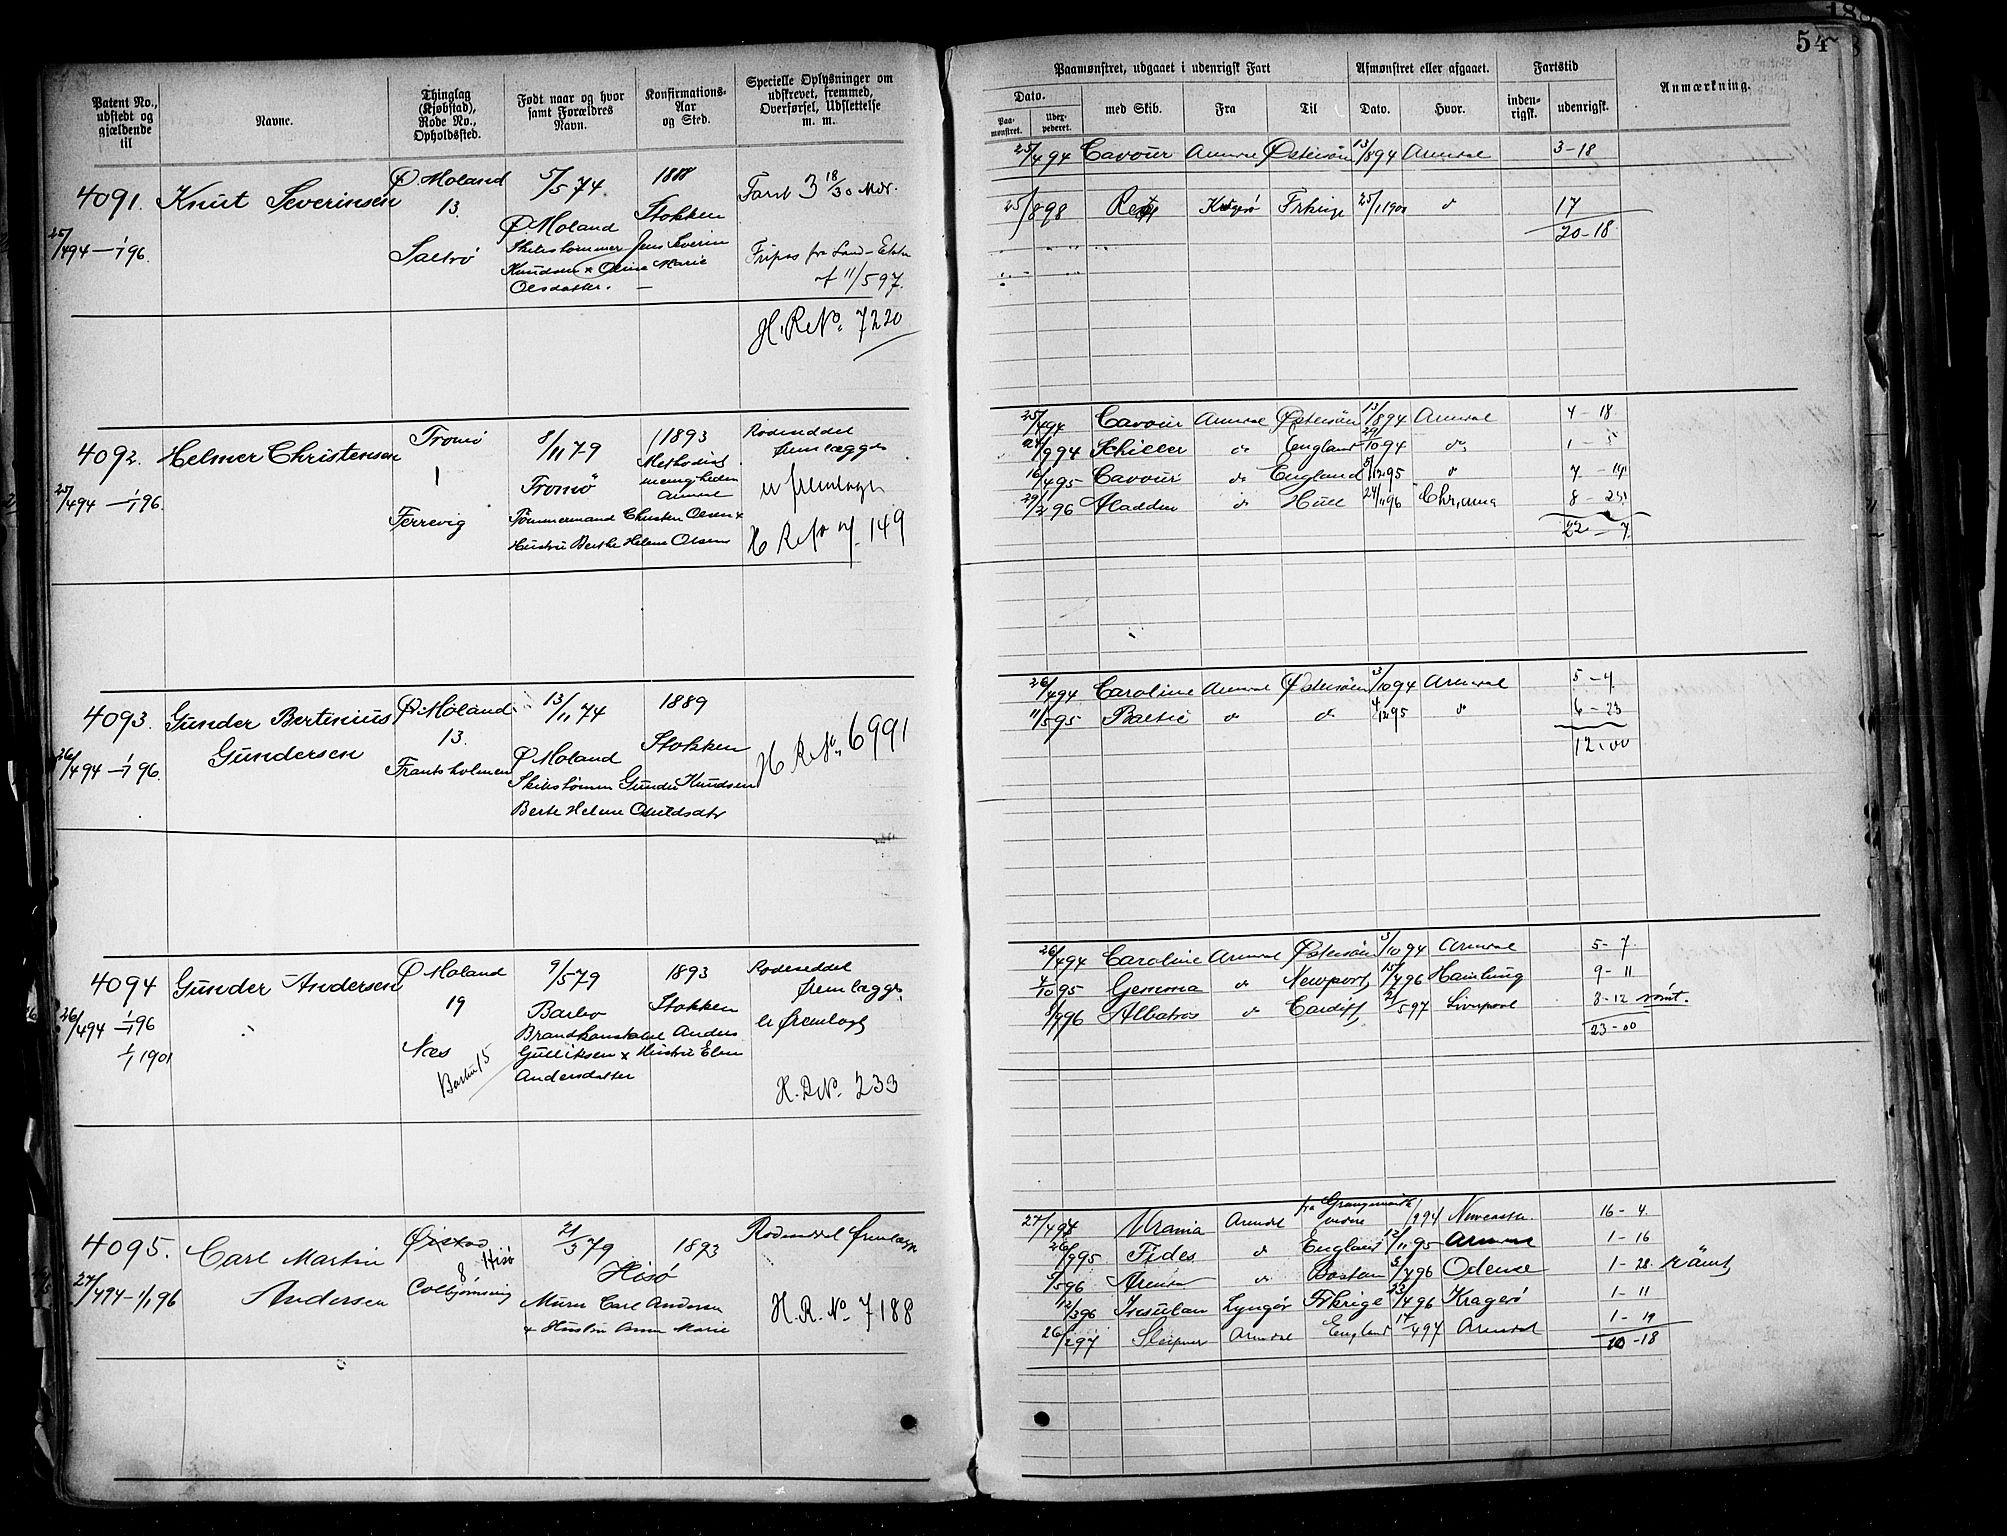 54
Patent No., udstedt og gjældende til
Navne.
Thinglag (Kjøbstad), Rode No., Opholdssted.
Født naar og hvor samt Forældres Navn.
Konfirmations-Aar og Sted.
Specielle Oplysninger om udskrevet, fremmed, Overførsel, Udslettelse m. m.
Paamønstret, udgaaet i udenrigsk Fart
Afmønstret eller afgaaet.
Fartstid
Anmærkning.
Dato.
Paamønstret.
med Skib.
Fra
Til
Dato.
Hvor.
indenrigsk.
udenrigsk.
4091. Knut Severinsen
25/4 94 – 1/1 96.
Ø. Moland
13.
Saltrø
5/5 74.
Ø. Moland
Skibstømmer Jens Severin
Knudsen & Oline Marie
Olsdatter.
Stokken
Faret 3 18/30 Mdr.
11/5 97.
H. R. No. 7220
25/4 94 Cavour Arendal Østersöen 13/8 94 Arendal 3-18
25/8 98 17
20-18
4092. Helmer Christensen
25/4 94 – 1/1 96.
Tromø
1
Færrevig
8/11 79
Tromö
Tømmermand Christen Olsen &
Hustru Berthe Helene Olsen
1893
Methodist
menigheden
Arendal
Rodeseddel
fremlægges
er fremlagt
149
25/4 94 Cavour Arendal Østersöen 13/8 94 Arendal 4-18
24/9 94 Schiller do England 29/10 94 do 1-5
16/4 95 Cavour do England 5/12 95 do
29/2 96 Aladden do Hull 24/11 96 Chr,ania
22-7
4093. Gunder Bertinius
Gundersen
26/4 94 – 1/1 96.
Ø. Moland
13.
Frantsholmen
13/11 74
Ø. Moland
Skibstømm Gunder Knudsen
Berte Helene
1889
Stokken
H. R. No. 6991
26/4 94 Caroline Arendal Østersöen 3/10 94 Arendal 5-4
11/5 95 Baltic do do 4/12 95 do 6-23
12.00
4094 Gunder Andersen
26/4 94 1/1 96
1/1 1901
Ø Moland
19
Næs
Barbu 15
9/5 79
Barbo
Brandkonstabel Anders
Gulliksen & Hustru Elen
Andersdatter
1893
Stokken
Rodeseddel
fremlægges
er fremlagt
H. R. No. 233
26/4 94 Caroline Arendal Østersöen 3/10 94 Arendal 5-7
Gemma do Newport 15/7 96 Hamburg 9-11
8/9 96 Albatros do Cardiff Liverpool 8-12 römt.
23-00
4095. Carl Martin
Andersen
27/4 94 – 1/1 96
Øiestad
8 Hisø
Colbjørnsvig
21/3 79
Hisø
Murer Carl Andersen
& Hustru Anne Marie
1893
Rodeseddel fremlagt
H. R. No. 7188
27/4 94 Urania Arendal fra Grangemouth 16-4.
26/9 95 Fides do England 12/11 95 Arendal 1-16
do Boston Odense 1-28 römt
12/2 96 Insulan Lyngør Frkrige 23/4 96 Kragerö 1-11
26/2 97 Sleipner Arendal England 14/4 97 Arendal 1-19
20-18